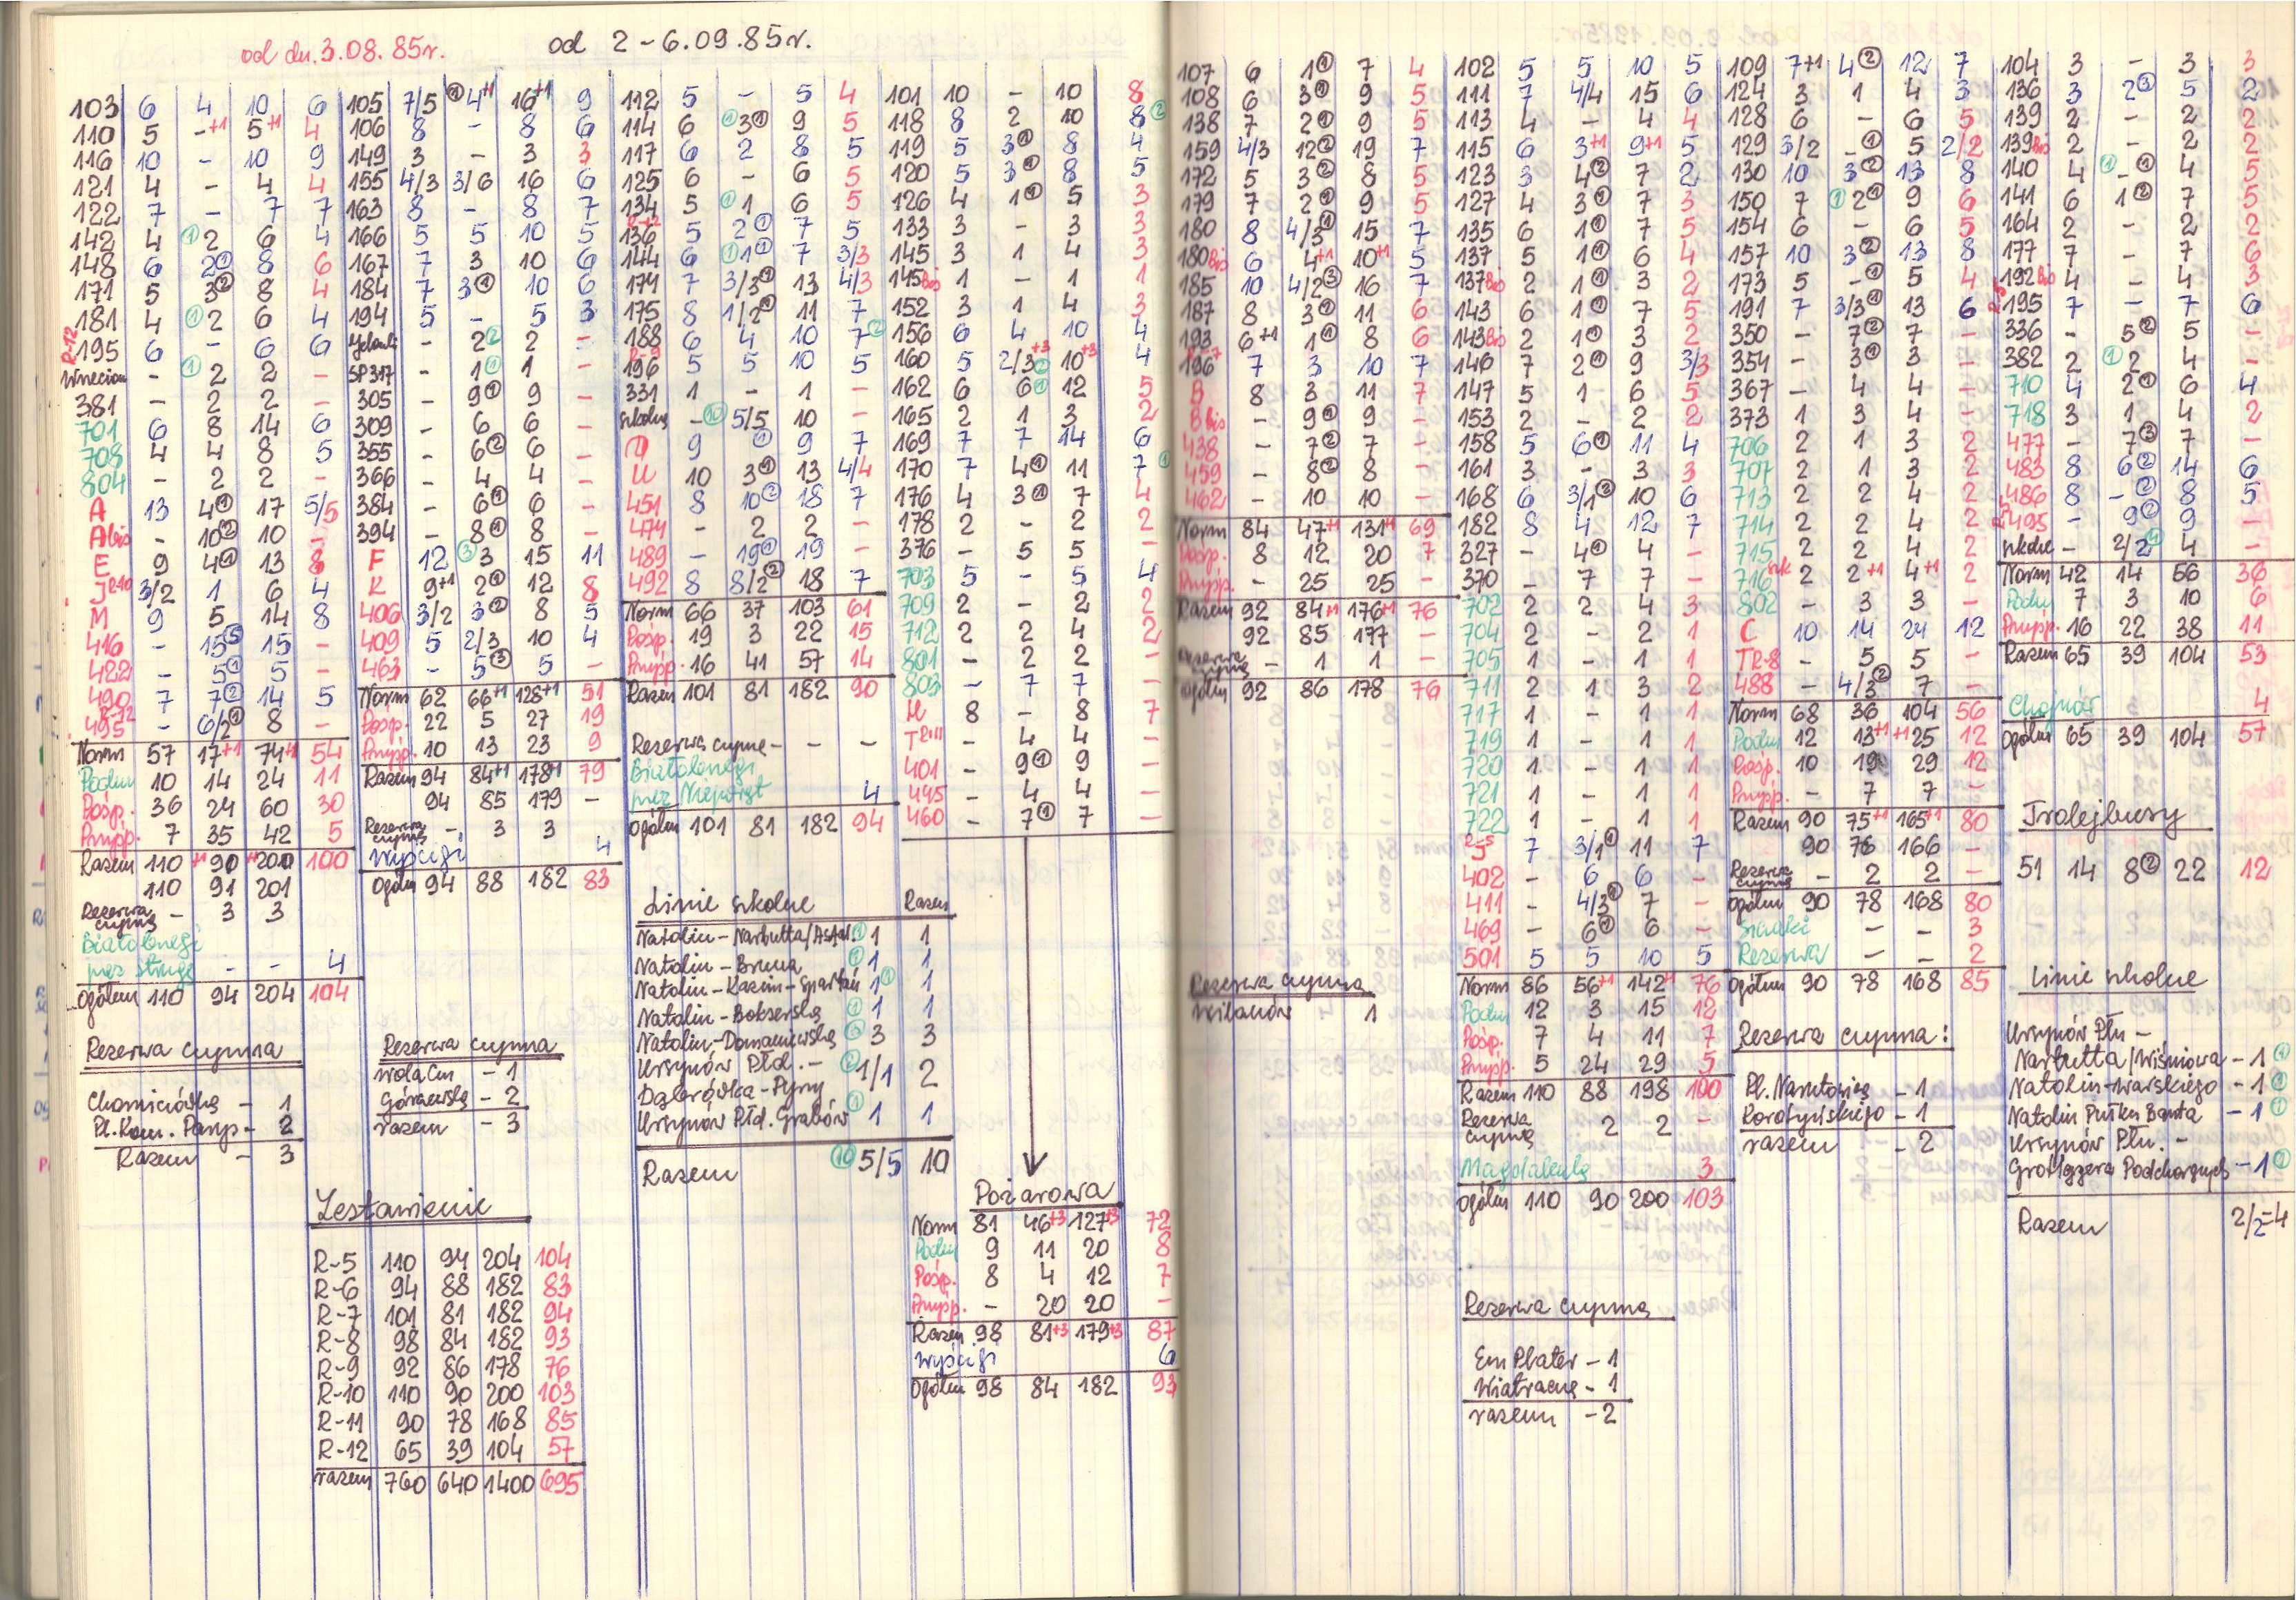 od dn. 3.08.85r.
od 2-6.09.85r.
103 6 4 10 6
110 5 -+1 5+1 4
116 10 - 10 9
121 4 - 4 4
122 7 - 7 7
142 4 ① 2 6 4
148 6 2① 8 6
171 5 3② 8 4
181 4 ① 2 6 4
R-12 195 6 - 6 6
- ① 2 2 -
381 - 2 2 -
701 6 8 14 6
708 4 4 8 5
804 - 2 2 -
A 13 4① 17 5/5
A bis - 10② 10 -
E 9 4① 13 8
J R-10 3/2 1 6 4
M 9 5 14 8
416 - 15⑤ 15 -
422 - 5① 5 -
490 7 7② 14 5
495 R-12 - 6/2① 8 -
Norm 57 17+1 74+1 54
Podm 10 14 24 11
Posp. 36 24 60 30
Przysp. 7 35 42 5
Razem 110 +1 90 +1 200 100
110 91 201
Rezerwa czynna - 3 3
Białołęngi
przez Strugę - - 4
Ogółem 110 94 204 104
Rezerwa czynna
Chomiczówka - 1
Pl. Kom. Parys - 2
Razem - 3
105 7/5 ① 4+1 16+1 9
106 8 - 8 6
149 3 - 3 3
155 4/3 3/6 16 6
163 8 - 8 7
166 5 5 10 5
167 7 3 10 6
184 7 3① 10 6
194 5 - 5 3
- 2② 2 -
SP 317 - 1① 1 -
305 - 9① 9 -
309 - 6 6 -
355 - 6② 6 -
366 - 4 4 -
384 - 6① 6 -
394 - 8① 8 -
F 12 ③ 3 15 11
K 9+1 2① 12 8
406 3/2 3② 8 5
409 5 2/3 10 4
463 - 5③ 5 -
Norm 62 66+1 128+1 51
Posp. 22 5 27 19
Przysp. 10 13 23 9
Razem 94 84+1 178+1 79
94 85 179 -
Rezerwa czynna - 3 3
Wyścigi 4
Ogółem 94 88 182 83
Rezerwa czynna
Wola Cm - 1
Górczewska - 2
razem - 3
Zestawienie
R-5 110 94 204 104
R-6 94 88 182 83
R-7 101 81 182 94
R-8 98 84 182 93
R-9 92 86 178 76
R-10 110 90 200 103
R-11 90 78 168 85
R-12 65 39 104 57
razem 760 640 1400 695
112 5 - 5 4
114 6 ① 3① 9 5
117 6 2 8 5
125 6 - 6 5
134 5 ① 1 6 5
R-12 136 5 2① 7 5
144 6 ① 1① 7 3/3
174 7 3/3① 13 4/3
175 8 1/2① 11 7
188 6 4 10 7②
R-9 196 5 5 10 5
331 1 - 1 -
szkolne - ⑩ 5/5 10 -
O 9 ① 9 7
U 10 3① 13 4/4
451 8 10② 18 7
474 - 2 2 -
489 - 19① 19 -
492 8 8/2② 18 7
Norm 66 37 103 61
Posp. 19 3 22 15
Przysp. 16 41 57 14
Razem 101 81 182 90
Rezerwa czynna - - -
Białołęngi
przez Nieporęt 4
Ogółem 101 81 182 94
Linie szkolne Razem
Natolin - Narbutta/Asfal ① 1 1
Natolin - Bruna ① 1 1
Natolin - Kazim - Spartań 1① 1
Natolin - Bokserska ① 1 1
Natolin - Domaniewska ③ 3 3
Ursynów Płd. -
Dąbrówka - Pyry ② 1/1 2
Ursynów Płd. Grabów ① 1 1
Razem ⑩ 5/5 10
101 10 - 10 8
118 8 2 10 8②
119 5 3① 8 4
120 5 3① 8 5
126 4 1① 5 3
133 3 - 3 3
145 3 1 4 3
145 bis 1 - 1 1
152 3 1 4 3
156 6 4 10 4
160 5 2/3② +3 10+3 4
162 6 6① 12 5
165 2 1 3 2
169 7 7 14 6
170 7 4① 11 7①
176 4 3① 7 4
178 2 - 2 2
376 - 5 5 -
703 5 - 5 4
709 2 - 2 2
712 2 2 4 2
801 - 2 2 -
803 - 7 7 -
H 8 - 8 7
T R-11 - 4 4 -
401 - 9① 9 -
445 - 4 4 -
460 - 7① 7 -
Pożarowa
Norm 81 46+3 127+3 72
Podm 9 11 20 8
Posp. 8 4 12 7
Przysp. - 20 20 -
Razem 98 81+3 179+3 87
Wyścigi 6
Ogółem 98 84 182 93
107 6 1① 7 4
108 6 3① 9 5
138 7 2① 9 5
159 4/3 12② 19 7
172 5 3② 8 5
179 7 2① 9 5
180 8 4/3① 15 7
180 bis 6 4+1 10+1 5
185 10 4/2③ 16 7
187 8 3① 11 6
193 6+1 1① 8 6
R-7 196 7 3 10 7
B 8 3 11 7
B bis - 9① 9 -
438 - 7② 7 -
459 - 8② 8 -
462 - 10 10 -
Norm 84 47+1 131+1 69
Posp. 8 12 20 7
Przysp. - 25 25 -
Razem 92 84+1 176+1 76
92 85 177 -
Rezerwa czynna - 1 1 -
Ogółem 92 86 178 76
Rezerwa czynna
Wilanów 1
102 5 5 10 5
111 7 4/4 15 6
113 4 - 4 4
115 6 3+1 9+1 5
123 3 4② 7 2
127 4 3① 7 3
135 6 1① 7 5
137 5 1① 6 4
137 bis 2 1① 3 2
143 6 1① 7 5
143 bis 2 1① 3 2
146 7 2① 9 3/3
147 5 1 6 5
153 2 - 2 2
158 5 6① 11 4
161 3 - 3 3
168 6 3/1② 10 6
182 8 4 12 7
327 - 4① 4 -
370 - 7 7 -
702 2 2 4 3
704 2 - 2 1
705 1 - 1 1
711 2 1 3 2
717 1 - 1 1
719 1 - 1 1
720 1 - 1 1
721 1 - 1 1
722 1 - 1 1
R-5 J 7 3/1① 11 7
402 - 6 6 -
411 - 4/3② 7 -
469 - 6① 6 -
501 5 5 10 5
Norm 86 56+1 142+1 76
Podm 12 3 15 12
Pośp. 7 4 11 7
Przysp. 5 24 29 5
Razem 110 88 198 100
Rezerwa czynna 2 2 -
Magdalenka 3
Ogółem 110 90 200 103
Rezerwa czynna
Em Plater - 1
Wiatraczna - 1
razem - 2
109 7+1 4② 12 7
124 3 1 4 3
128 6 - 6 5
129 3/2 -① 5 2/2
130 10 3② 13 8
150 7 ① 2① 9 6
154 6 - 6 5
157 10 3② 13 8
173 5 -① 5 4
191 7 3/3① 13 6
350 - 7② 7 -
354 - 3① 3 -
367 - 4 4 -
373 1 3 4 -
706 2 1 3 2
707 2 1 3 2
713 2 2 4 2
714 2 2 4 2
715 2 2 4 2
716 2 2+1 4+1 2
802 - 3 3 -
C 10 14 24 12
T R-8 - 5 5 -
488 - 4/3② 7 -
Norm 68 36 104 56
Podm 12 13+1 +1 25 12
Pośp. 10 19 29 12
Przysp. - 7 7 -
Razem 90 75+1 165+1 80
90 76 166 -
Rezerwa czynna - 2 2 -
Ogółem 90 78 168 80
Siadki - - 3
Rezerwa - - 2
Ogółem 90 78 168 85
Rezerwa czynna:
Pl. Narutowicza - 1
Korotyńskiego - 1
razem - 2
104 3 - 3 3
136 3 2③ 5 2
139 2 - 2 2
139 bis 2 - 2 2
140 4 ① -① 4 5
141 6 1② 7 5
164 2 - 2 2
177 7 - 7 6
192 bis 4 - 4 3
R-5 195 7 - 7 6
336 - 5② 5 -
382 2 ① 2 4 -
710 4 2① 6 4
718 3 1 4 2
477 - 7③ 7 -
483 8 6② 14 6
486 8 -② 8 5
R-5 495 - 9② 9 -
szkolne - 2/2④ 4 -
Norm 42 14 56 36
Podm 7 3 10 6
Przysp. 16 22 38 11
Razem 65 39 104 53
Chojnów 4
Ogółem 65 39 104 57
Trolejbusy
51 14 8② 22 12
Linie szkolne
Ursynów Płn -
Narbutta/Wiśniowa - 1①
Natolin - Warskiego - 1①
Natolin Pułku Baszta - 1①
Ursynów Płn. -
Grottgera Podchorążych - 1①
Razem 2/2=4